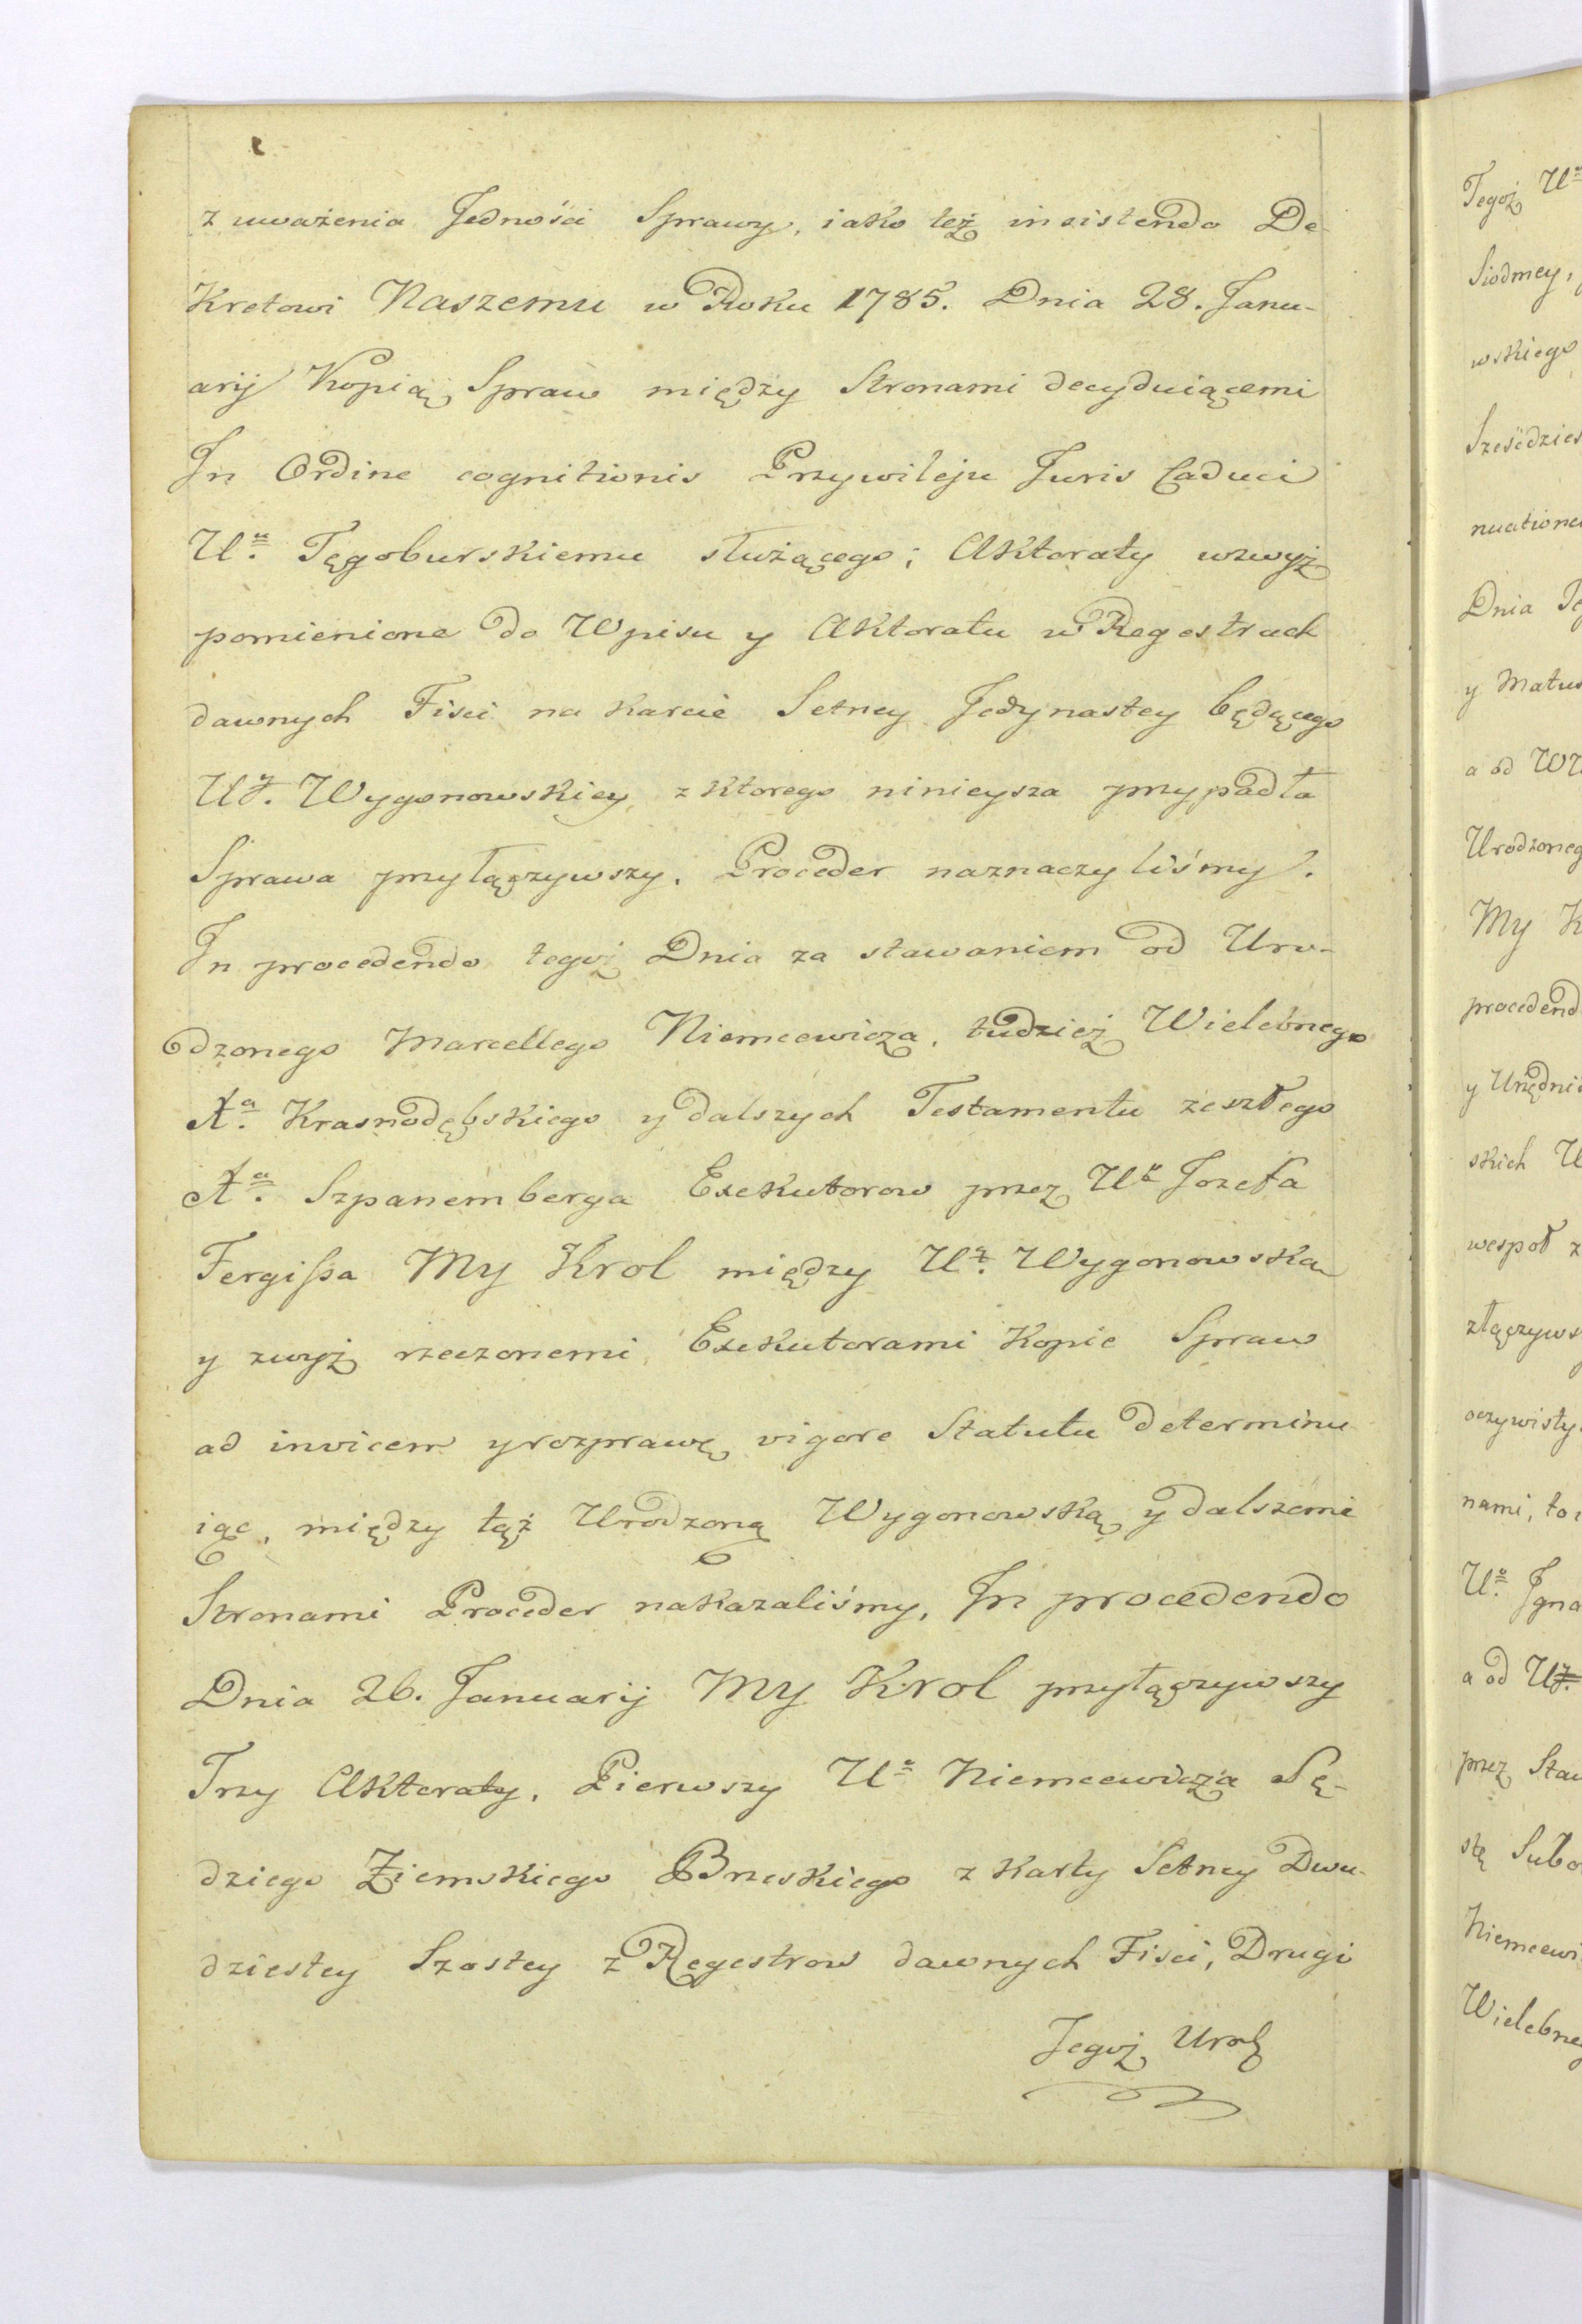 z uważenia Jedności Sprawy, iako też insistendo De-
Kretowi Naszemu w Roku 1785. Dnia 28. Janu-
arij Kopią Spraw między Stronami decyduiącemi
In Ordine cognitionis Przywileju Juris Caduci
Uu. Tęgoburskiemu służącego; Aktoraty wzwyż
pomienione do Wpisu y Aktoratu w Regestrach
dawnych Fisci na karcie Setney Jedynastey będącego
Uy. Wygonowskiey, z ktorego ninieysza przypadła
Sprawa przyłączywszy, Proceder naznaczyliśmy.
In procedendo tegoż Dnia za stawaniem od Uro-
dzonego Marcellego Niemcewicza, tudzież Wielebnego
Xa. Krasnodębskiego y dalszych Testamentu zeszłego
Xa. Szpanemberga Exekutorow przez Ua Jozefa
Fergissa My Krol między Uą. Wygonowską
y zwyż rzeczonemi Exekutorami Kopie Spraw
ad invicem y rozprawę vigore Statutu determinu-
iąc, między tąż Urodzoną Wygonowską y dalszemi
Stronami Proceder nakazaliśmy, In procedendo
Dnia 26. Januarij My Krol przyłączywszy
Trzy Aktoraty, Pierwszy Ua Niemcewicza Sę-
dziego Ziemskiego Brzeskiego z karty Setney Dwu-
dziestey Szostey z Regestrow dawnych Fisci, Drugi
Tegoż Urodz
Tegoż Uo
Siodmey,
wskiego
Sześćdzies
nuatione
Dnia
y Matus
a od
Urodzoneg
My K
procedend
y Urzędni
skich U
wespoł z
złączyws
oczywisty
nami, to i
Uo. Igna
a od Uy.
przez Staw
stę Subo
Niemcewi
Wielebneg